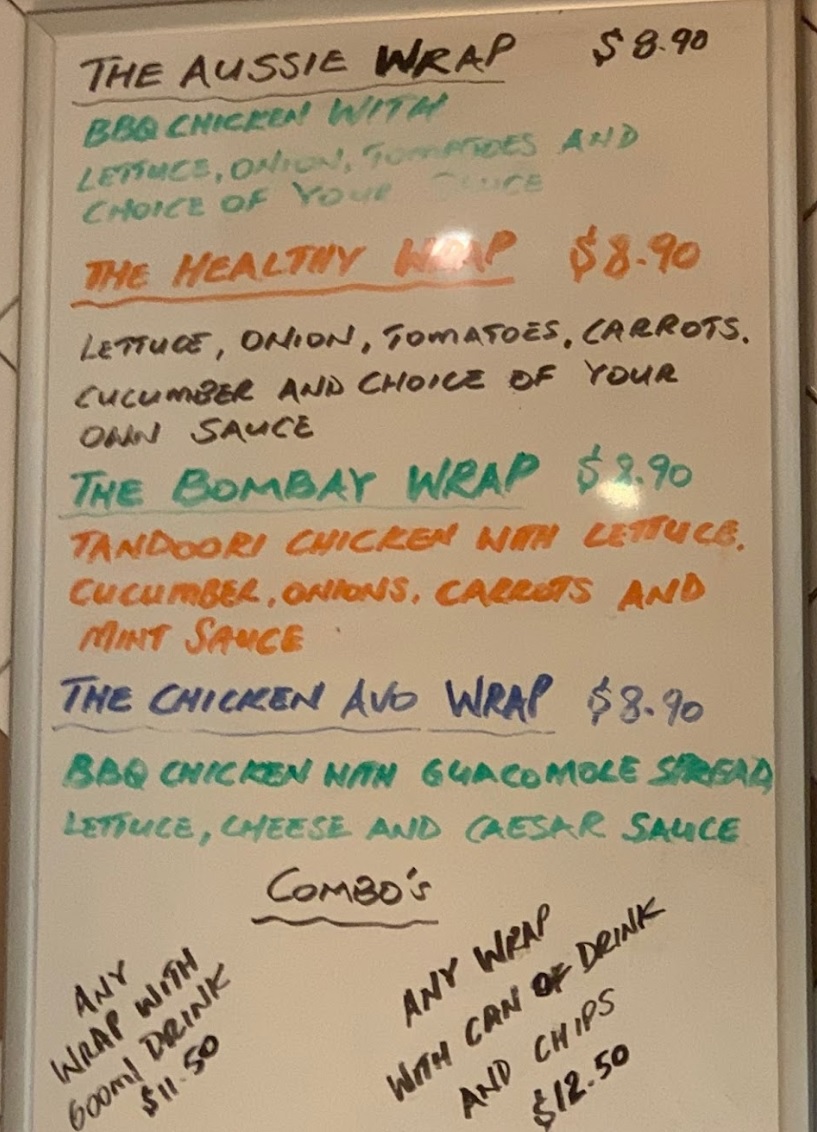 THE AUSSIE WRAP $8.90
BBQ CHICKEN WITH
LETTUCE, ONION, TOMATOES AND
CHOICE OF YOUR SAUCE
THE HEALTHY WRAP $8.90
LETTUCE, ONION, TOMATOES, CARROTS.
CUCUMBER AND CHOICE OF YOUR
OWN SAUCE
THE BOMBAY WRAP $8.90
TANDOORI CHICKEN WITH LETTUCE.
CUCUMBER, ONIONS, CARROTS AND
MINT SAUCE
THE CHICKEN AVO WRAP $8.90
BBQ CHICKEN WITH GUACOMOLE SPREAD
LETTUCE, CHEESE AND CAESAR SAUCE
COMBO'S
ANY
WRAP WITH
600ml DRINK
$11.50
ANY WRAP
WITH CAN OF DRINK
AND CHIPS
$12.50